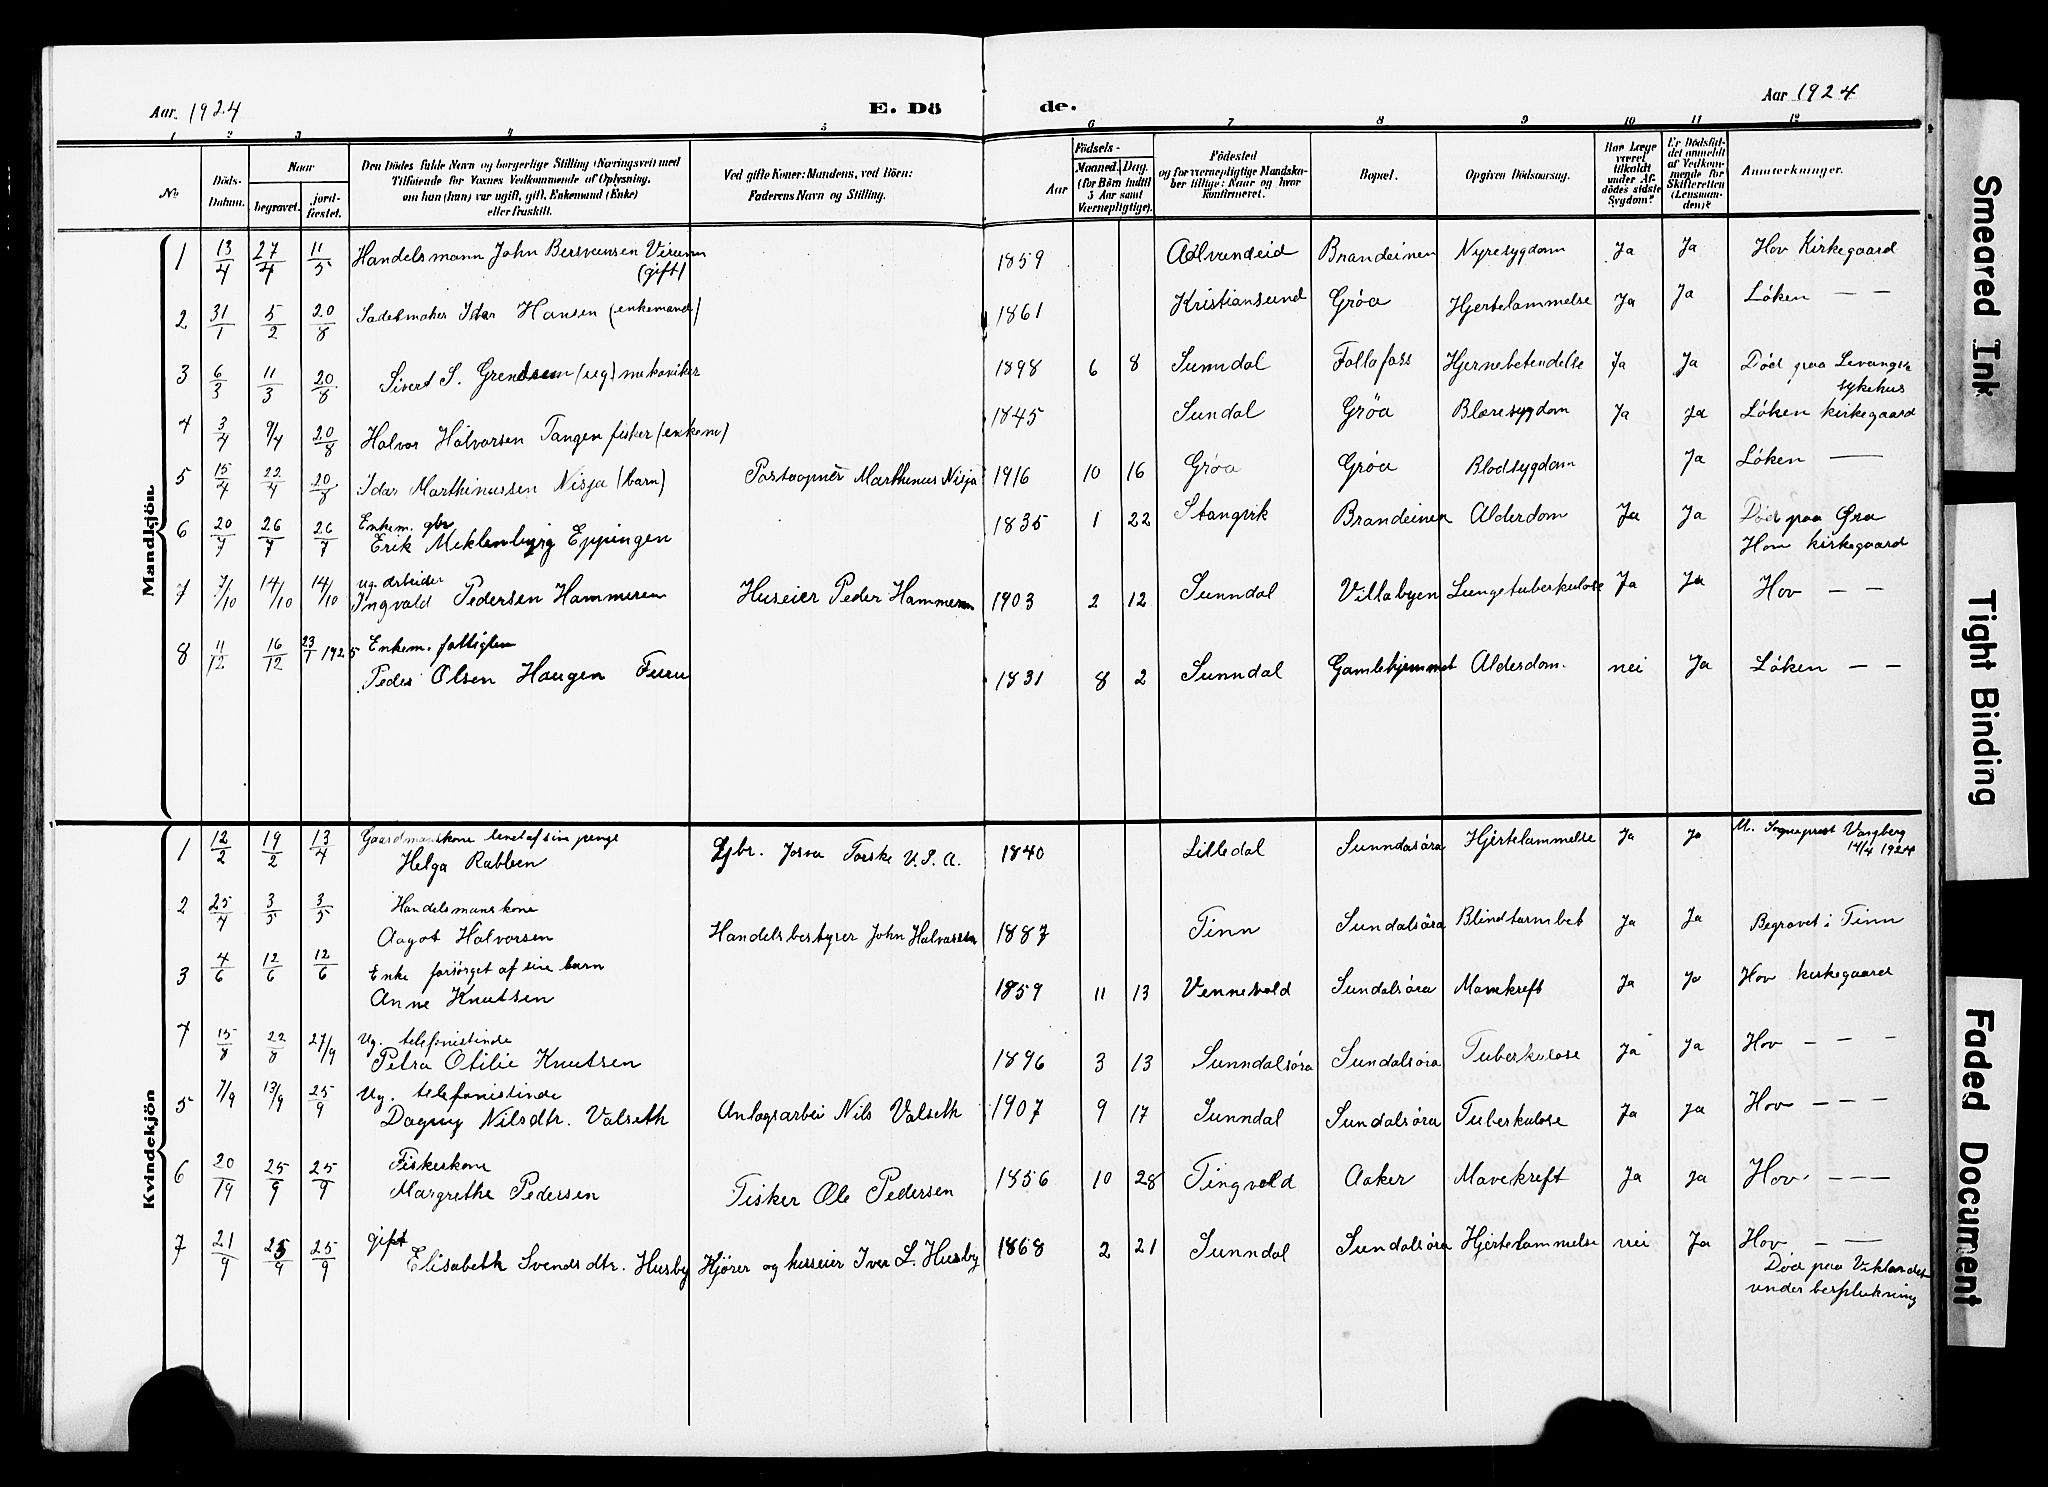 Aar. 1924
E. Dö
de.
Aar 1924
1 2 3 4 5 6 7 8 9 10 11 12
No
Döds-
Datum.
Naar
begravet.
jord-
fæstet.
Den Dödes fulde Navn og borgerlige Stilling (Næringsvei) med
Tilföiende for Voxnes Vedkommende af Oplysning,
om han (hun) var ugift, gift, Enkemand (Enke)
eller fraskilt.
Ved gifte Koner: Mandens, ved Börn:
Faderens Navn og Stilling.
Födsels-
Aar
Maaned.
Dag.
(for Börn indtil
5 Aar samt
Værnepligtige).
Födested
og for værnepligtige Mandska-
ber tillige: Naar og hvor
konfirmeret.
Bopæl.
Opgiven Dödsaarsag.
Har Læge
været
tilkaldt
under Af-
dödes sidste
Sygdom?
Er Dödsfal-
det anmeldt
af Vedkom-
mende for
Skifteretten
(Lensman-
den)?
Anmerkninger.
Mandkjön.
1 13/4 27/4 11/5 Handelsmann John (gift) 1859 Brandeinen Nyresygdom Ja Ja Hov Kirkegaard
2 31/1 5/2 20/8 Sadelmaker Idar Hansen (enkemand) 1861 Kristiansund Grøa Hjertelammelse Ja Ja Løken — —
3 6/3 11/3 20/8 Sivert S. (ug) mekaniker 1898 6 8 Sunndal Follafoss Hjernebetendelse Ja Ja Død paa Levanger
sykehus
4 3/4 9/4 20/8 Halvor Halvorsen Tangen fisker (enkem) 1845 Sundal Grøa Blæresygdom Ja Ja Løken kirkegaard
5 15/4 22/4 20/8 Idar Marthinussen Nisja (barn) Marthinus Nisja 1916 10 16 Grøa Grøa Blodsygdom Ja Løken —
6 20/7 26/7 26/7 Enkem. gbr
Erik Meklenbyrg Eppingen 1835 1 22 Stangvik Brandeinen Alderdom Ja Ja Død paa Øra
Hov kirkegaard
7 7/10 14/10 14/10 ug. arbeider
Ingvald Pedersen Hammeren Huseier Peder Hammeren 1903 2 12 Sunndal Villabyen Lungetuberkulose Ja Ja Hov — —
8 11/12 16/12 23/1 1925 Enkem. fattiglem
Peder Olsen Haugen Furu 1831 8 2 Sunndal Gamlehjemmet Alderdom. nei Ja Løken — —
Kvindekjön
1 12/2 19/2 13/4 Gaardmanskone levet af sin penge
Helga Rabben Gbr. Torske U.S.A. 1840 Lilledal Sunndasöra Hjertelammelse Ja Ja M. Sogneprest Vangberg
14/4 1924
2 25/4 3/5 3/5 Handelsmanskone
Aagot Halvorsen Handelsbestyrer John Halvorsen 1887 Tinn Sundalsöra Blindtarmbet Ja Ja Begravet i Tinn
3 4/6 12/6 12/6 Enke forsørget af sine barn
Anne Knutsen 1859 11 13 Vennevold Sundalsøra Mavekreft Ja Ja Hov kirkegaard
4 15/8 22/8 27/9 Ug. telefonistinde
Petra Otilie Knutsen 1896 3 13 Sunndalsøra Sundalsøra Tuberkulose Ja Ja Hov — — —
5 7/9 13/9 25/9 Ug. telefonistinde
Dagny Nilsdtr. Valseth Anlagsarbei Nils Valseth 1907 9 17 Sunndal Sundalsøra Tuberkulose Ja Ja Hov — — —
6 20/19 25/9 25/9 Fiskerkone
Margrethe Pedersen Fisker Ole Pedersen 1856 10 28 Tingvold Aaker Mavekreft Ja Ja Hov — — —
7 21/9 25/9 25/9 gift
Elisabeth Svendsdtr. Husby Kjører og husseier Iver L. Husby 1868 2 21 Sunndal Sundalsøra Hjertelammelse nei Ja Hov — —
Død paa Viklandet
under berplukning
Smeared Ink
Tight Binding
Faded Document